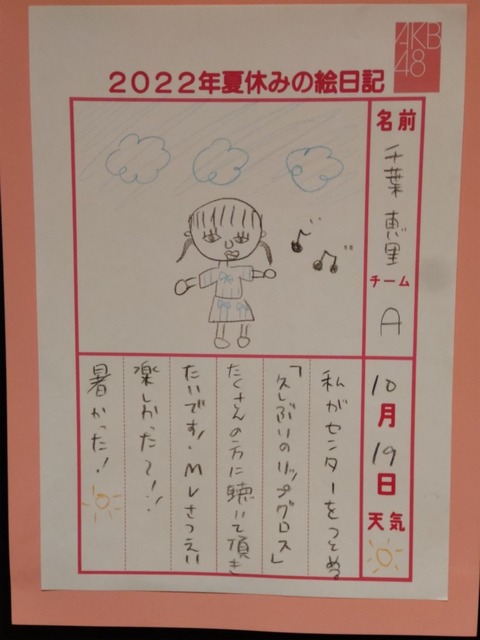 AKB
48
2022年夏休みの絵日記
名前
千葉恵里
チーム
A
10
月
19
日
天気
私がセンターをつとめる
「久しぶりのリップグロス」
たくさんの方に聴いて頂き
たいです!・MVさつえい
楽しかった〜!!
暑かった!